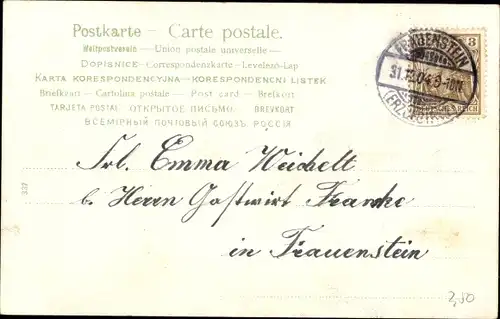 Postkarte – Carte postale.
Weltpostverein – Union postale universelle –
DOPISNICE – Correspondenzkarte – Levelező-Lap
KARTA KORESPONDENCYJNA – KORESPONDENCNI LISTEK
Briefkaart – Cartolina postale – Post card – Brefkort
TARJETA POSTAL ОТКРЫТОЕ ПИСЬМО. BREVKORT
ВСЕМІРНЫЙ ПОЧТОВЫЙ СОЮЗЪ РОССІЯ
3
FRAUENSTEIN
31.12.04.9-10V.
(ERZGEB.)
REICH
Frl. Emma Weichelt
b. Herrn Gastwirt Francke
in Frauenstein
337
2,50